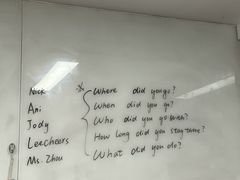 Nick
Ani
Jody
Leecheers
Ms. Zhou
Where did you go?
When did you go?
Who did you go with?
How long did you stay there?
What did you do?